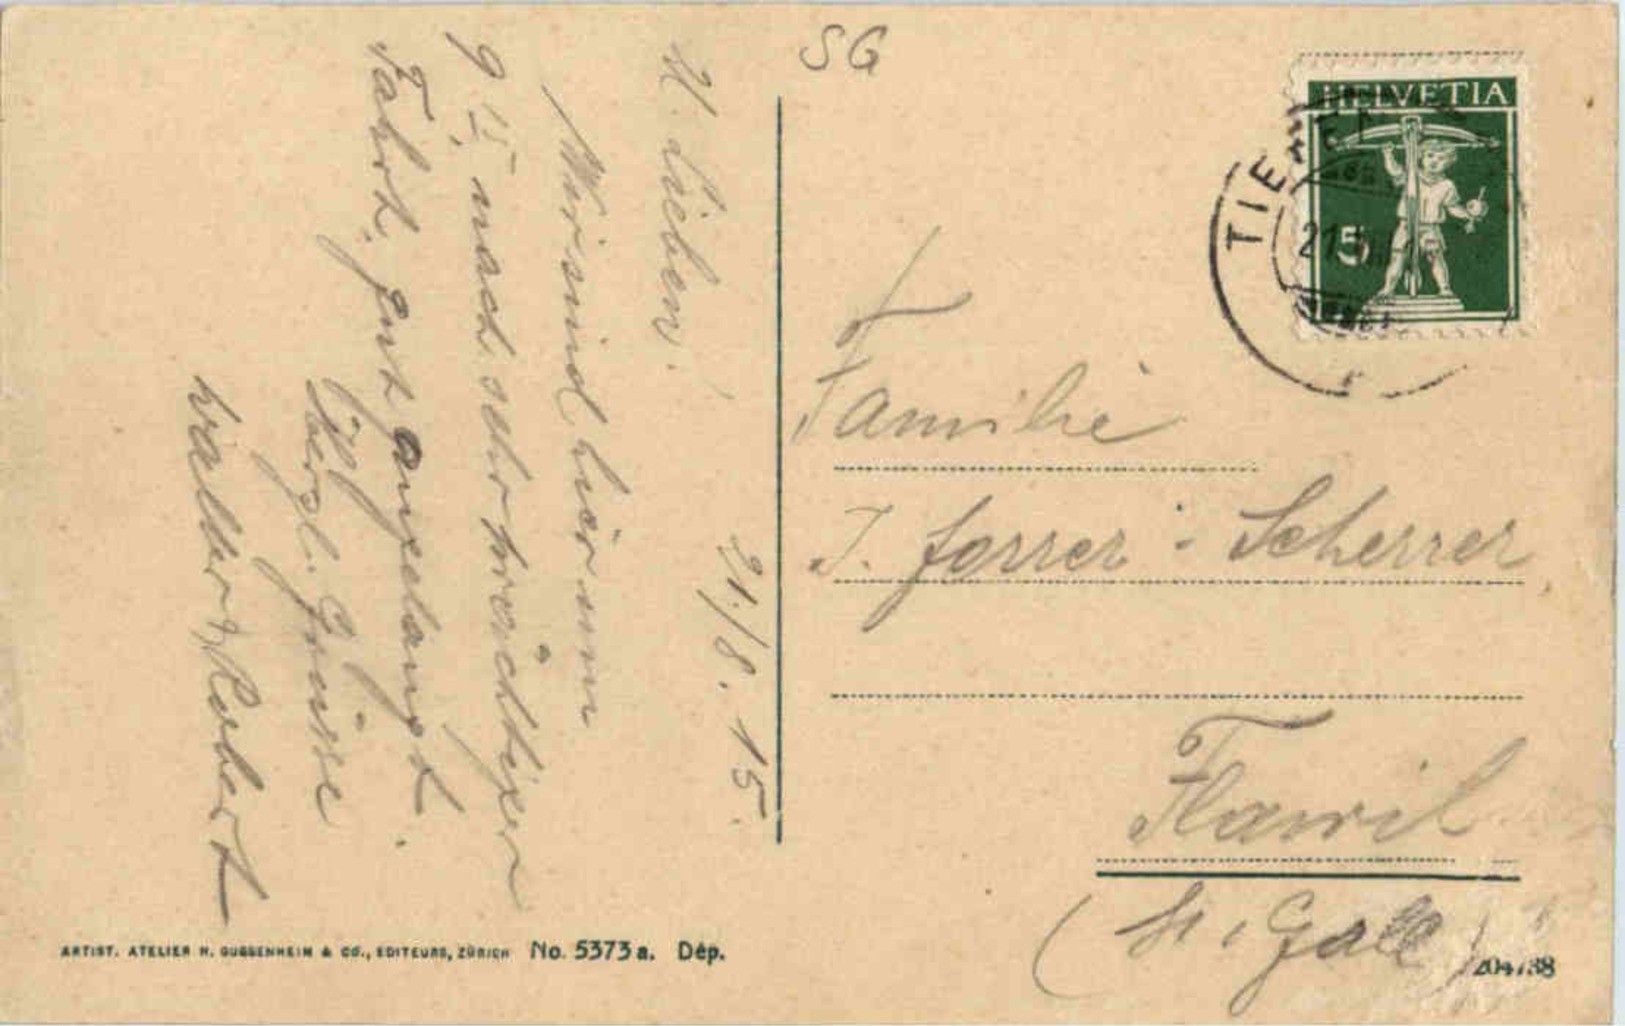 SG
HELVETIA
5
TIEF
21.
21./8. 15.
M. Lieben!
Wir sind hier um
9 15 nach sehr prächtiger
Fahrt, gut angelangt.
Hrzl. Grüsse
Walter & Robert
Familie
J. Forrer-Scherrer
Flawil
(St. Gall)
ARTIST. ATELIER H. GUGGENHEIM & CO., EDITEURS, ZÜRICH No. 5373 a. Dép.
204738